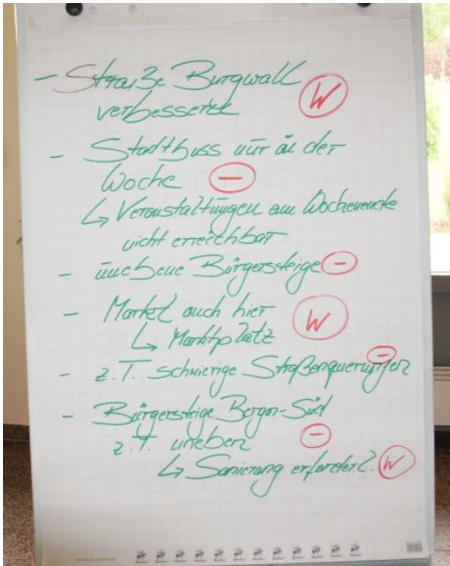 - Straße Burgwall W
verbessern
- Stadtbuss nur in der
Woche -
↳ Veranstaltungen am Wochenende
nicht erreichbar
- unebene Bürgersteige -
- Markt auch hier W
↳ Marktplatz
- z.T. schwierige Straßenquerungen -
- Bürgersteige Bergen-Süd
z.T. uneben -
↳ Sanierung erforderl. W